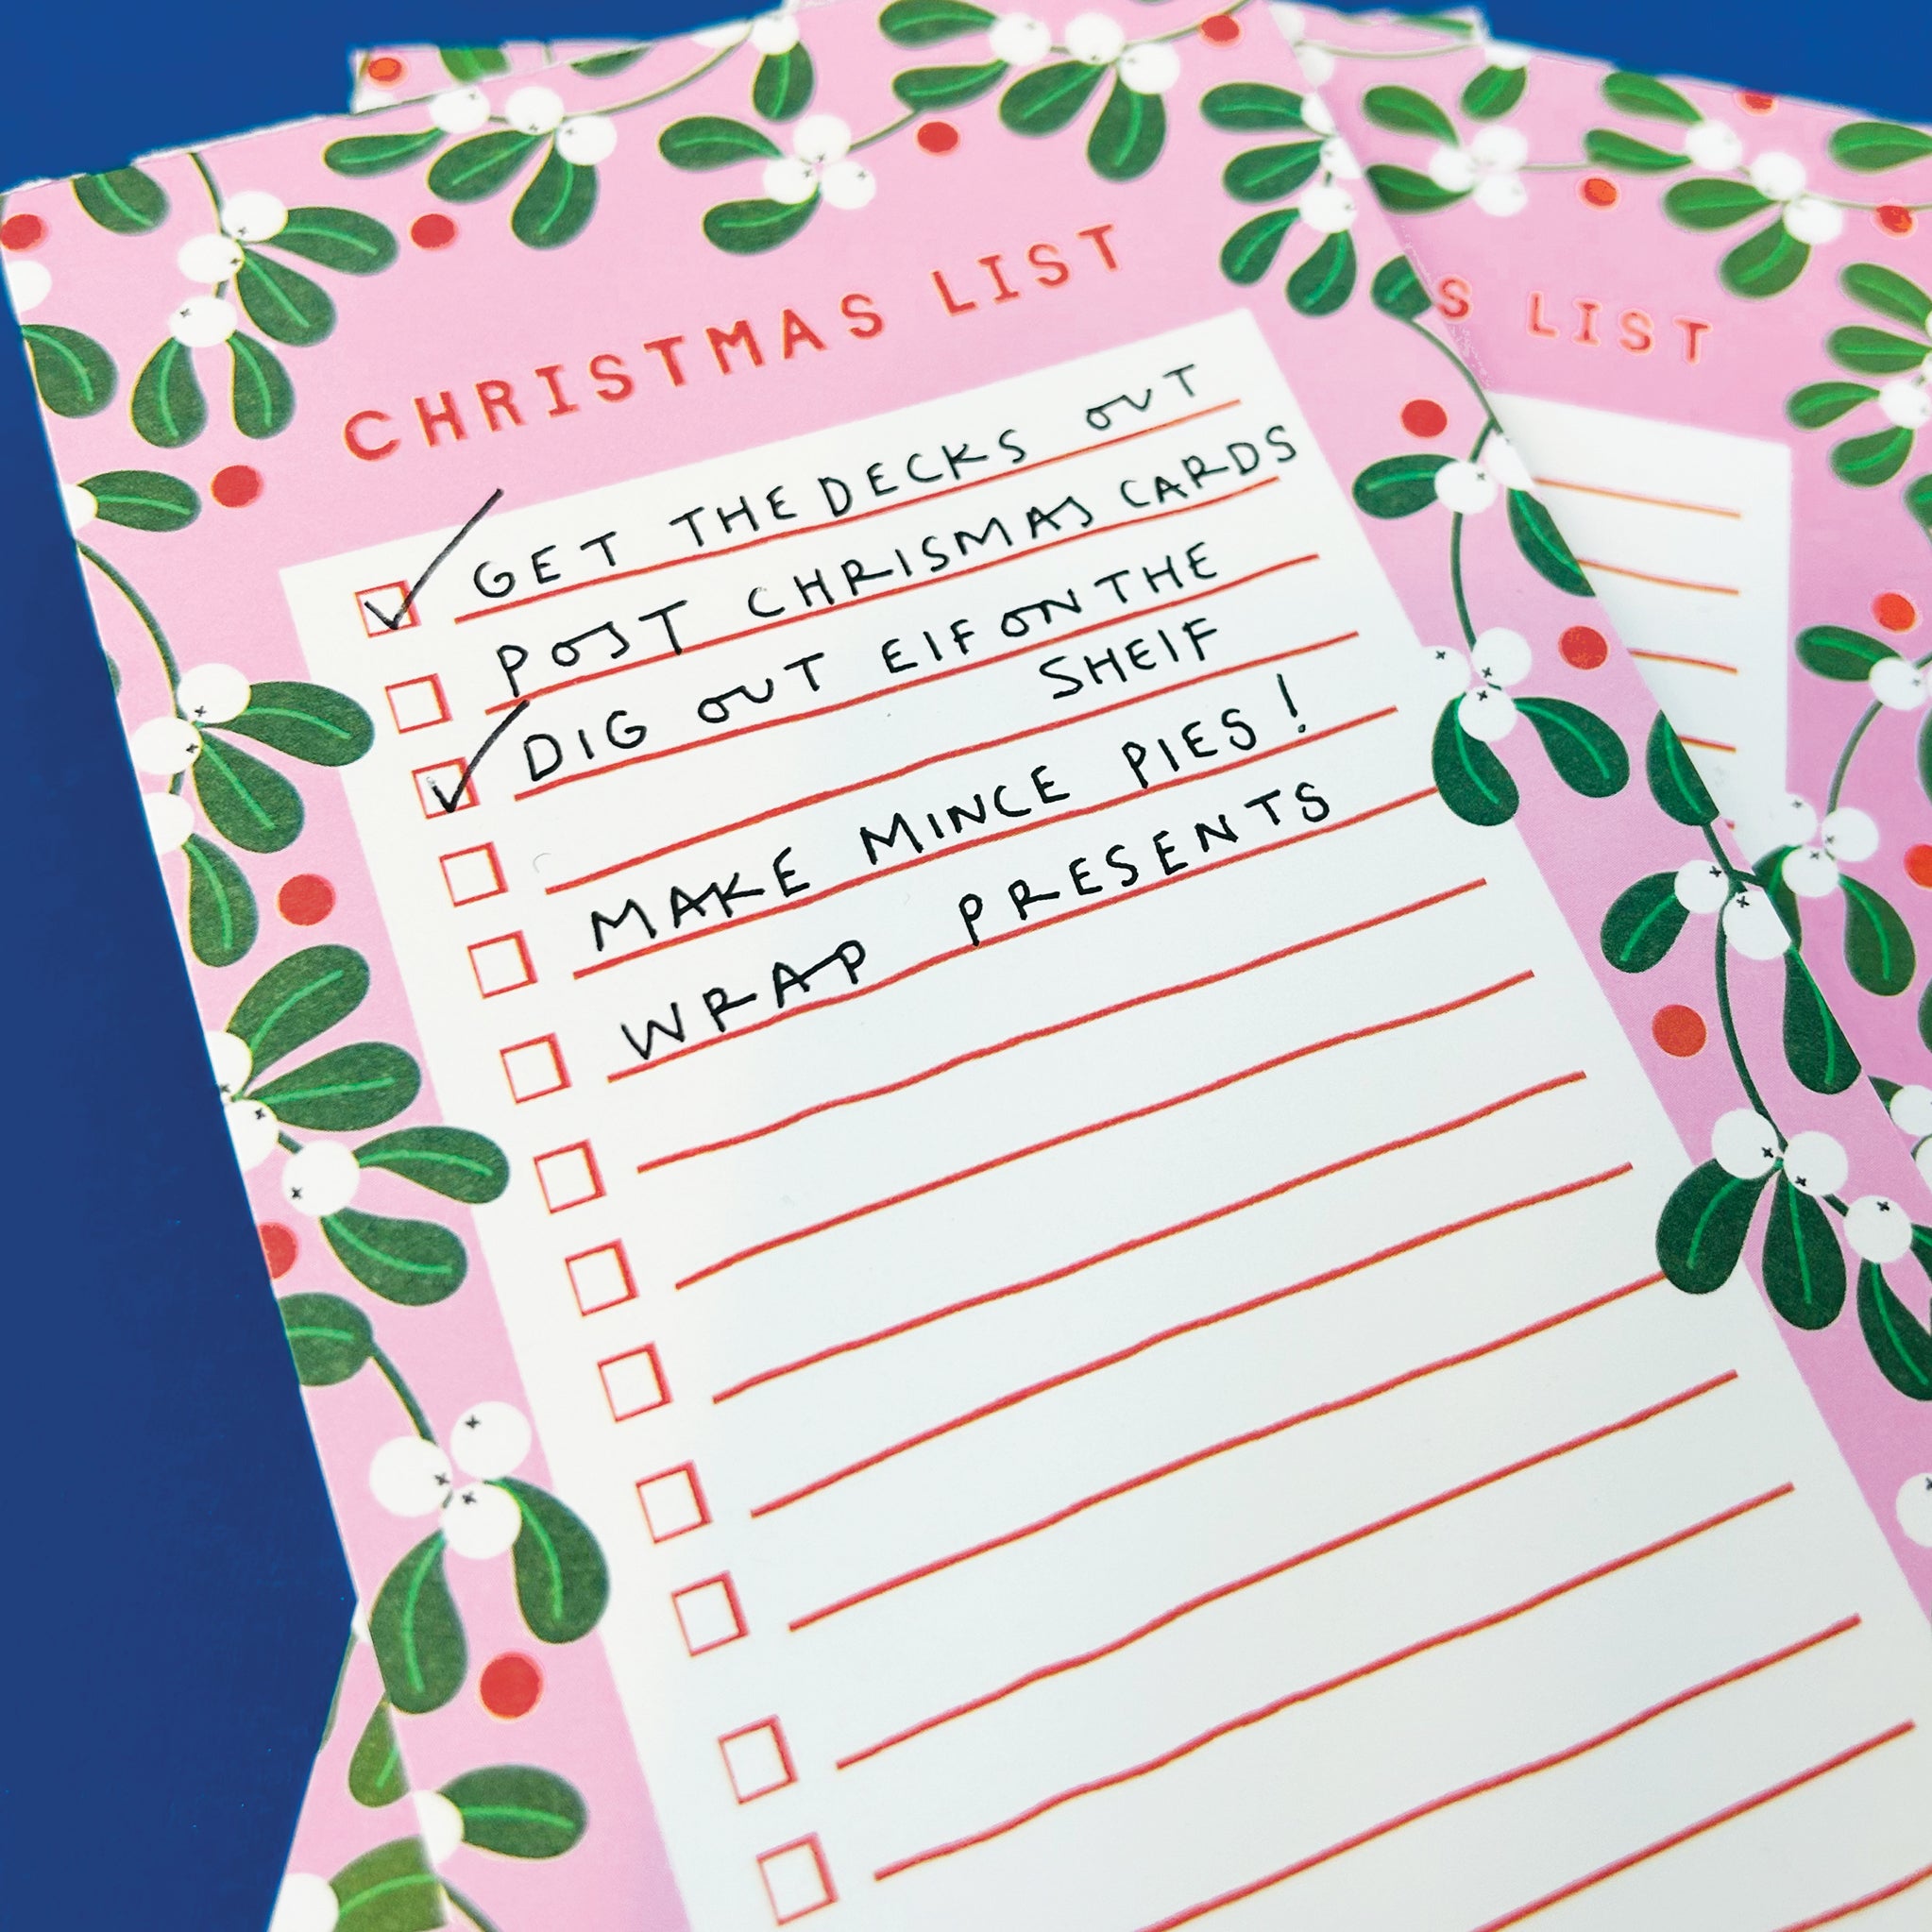 CHRISTMAS LIST
GET THE DECKS OUT
POST CHRISMAS CARDS
DIG OUT ElF ON THE
SHElF
MAKE MINCE PIES!
WRAP PRESENTS
S LIST